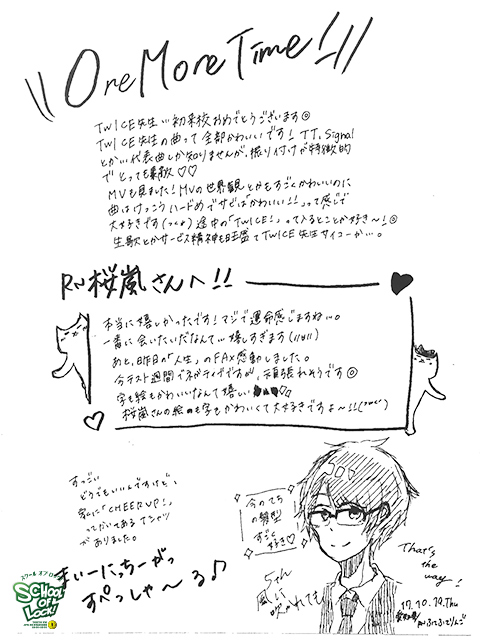 One More Time!
TWICE先生…初来校おめでとうございます◎
TWICE先生の曲って全部かわいいです！TT、Signal
とかい代表曲しか知りませんが、振り付けが特徴的
でとっても素敵♡♡
MVも見ました！MVの世界観とかもすごくかわいいのに
曲はけっこうハードめでサビは「かわいい！！」って感じで
大好きです 途中の「TWICE！」って入るとことか好き〜！◎
生歌とかサービス精神も旺盛でTWICE先生サイコーか…。
RN桜嵐さんへ!!
本当に嬉しかったです！マジで運命感じますね…。
一番に会いたいだなんて…嬉しすぎます
あと、昨日の「人生」のFAX感動しました。
今テスト週間でネガティブですが、頑張れそうです◎
字も絵もかわいいなんて嬉しい
桜嵐さんの絵も字もかわいくて大好きですよ〜!!
すっごい
どうでもいいんですけど、
家に「CHEER UP！」
って書いてあるTシャツ
がありました。
まぃーにっちーがっ
すぺっしゃ〜る♪
今のてち
の髪型
すごく
好き♡
風に
吹かれても
That's
the
way!
スクール オブ ロック!
SCHOOL
OF
LOCK!
17.10.19.Thu